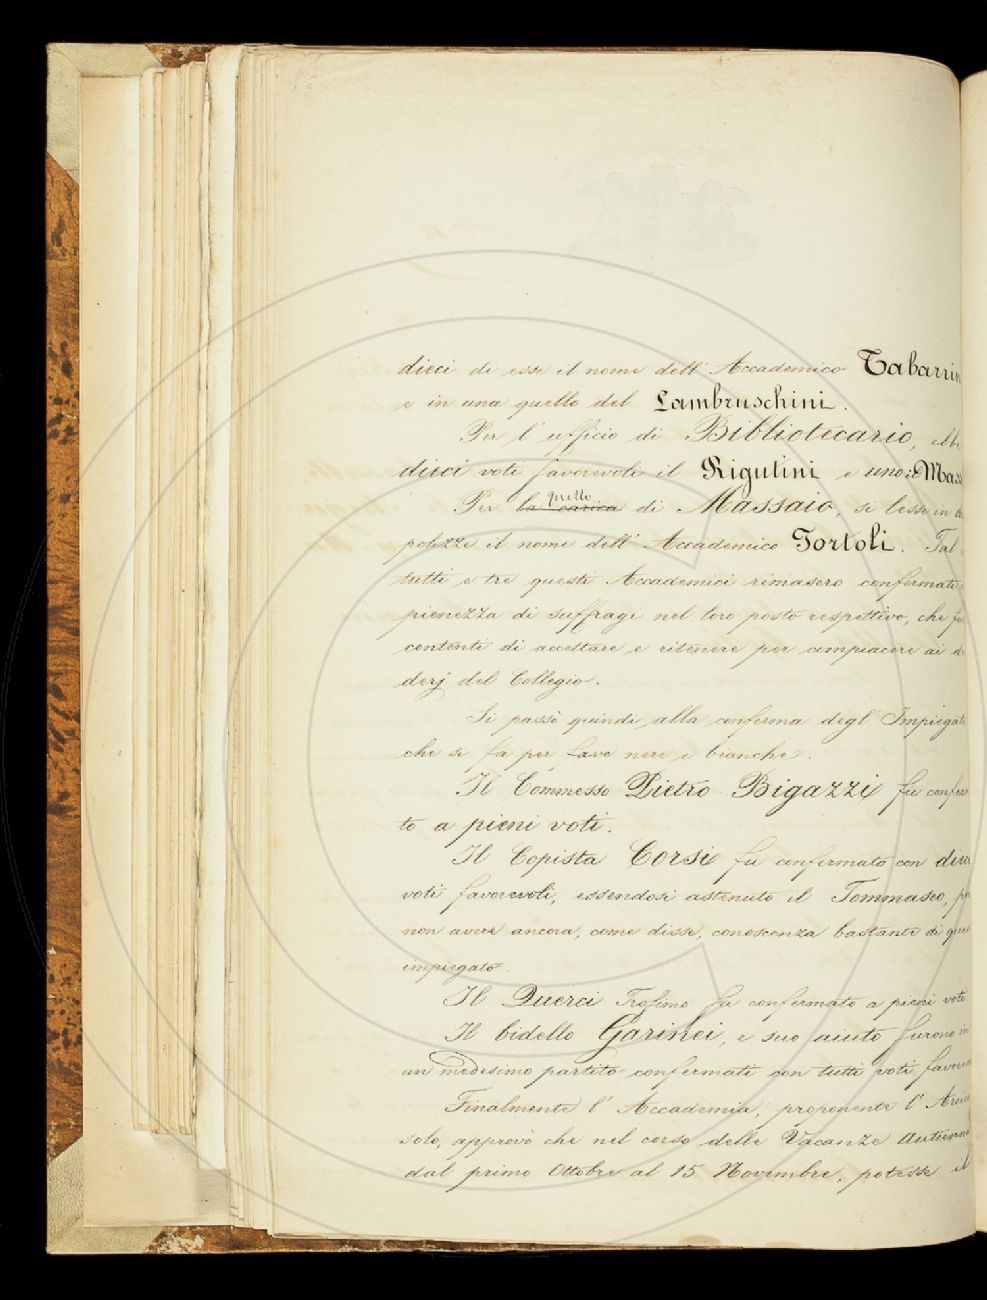 dieci di esse il nome dell' Accademico Tabarrin
e in una quello del Lambruschini.
Per l' ufficio di Bibliotecario, ebbe
dieci voti favorevoli il Rigutini e uno il Mas
Per la carica quello di Massaio, si lesse in
polizze il nome dell' Accademico Tortoli. Tal
tutti e tre questi Accademici rimasero confermati
pienezza di suffragi nel loro posto respettivo, che fu
contenti di accettare e ritenere per compiacere ai de
derj del Collegio.
Si passò quindi alla conferma degl' Impiegati
che si fa per fave nere e bianche.
Il Commesso Pietro Bigazzi fu confer
to a pieni voti.
Il Copista Corsi fu confermato con dieci
voti favorevoli, essendosi astenuto il Tommaseo, per
non avere ancora, come disse, conoscenza bastante di que
impiegato.
Il Querci Trofimo fu confermato a pieni voti
Il bidello Garinei, e suo aiuto furono in
un medesimo partito confermati con tutti voti favorevo
Finalmente l' Accademia, proponente l' Arcicon
solo, approvò che nel corso delle Vacanze Autunna
dal primo Ottobre al 15 Novembre, potesse il